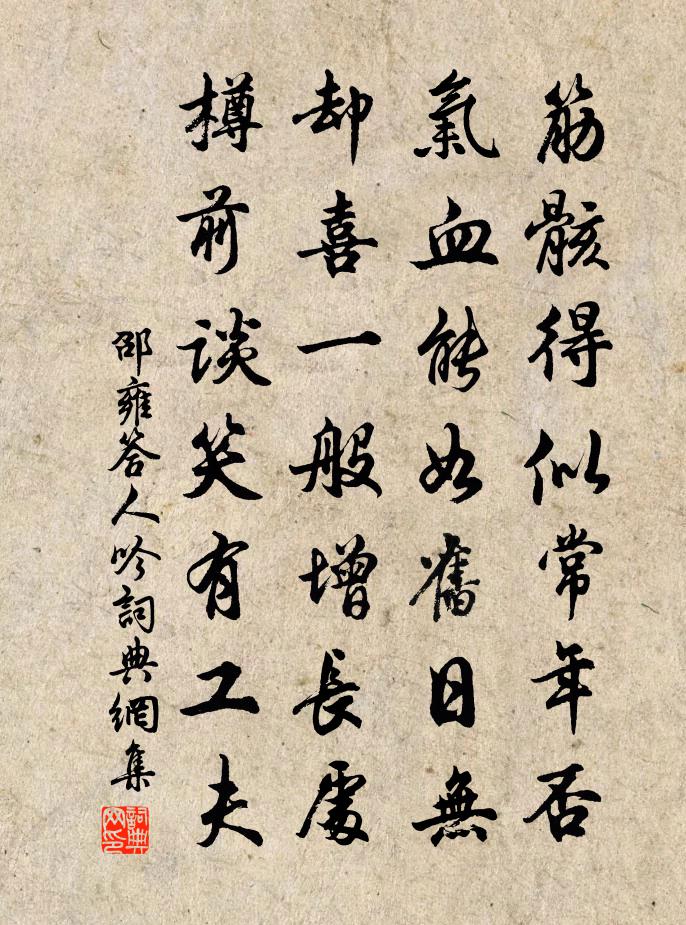 筋骸得似常年否
氣血能如舊日無
却喜一般增長處
樽前談笑有工夫
邵雍答人吟詞典網集
詞典网印